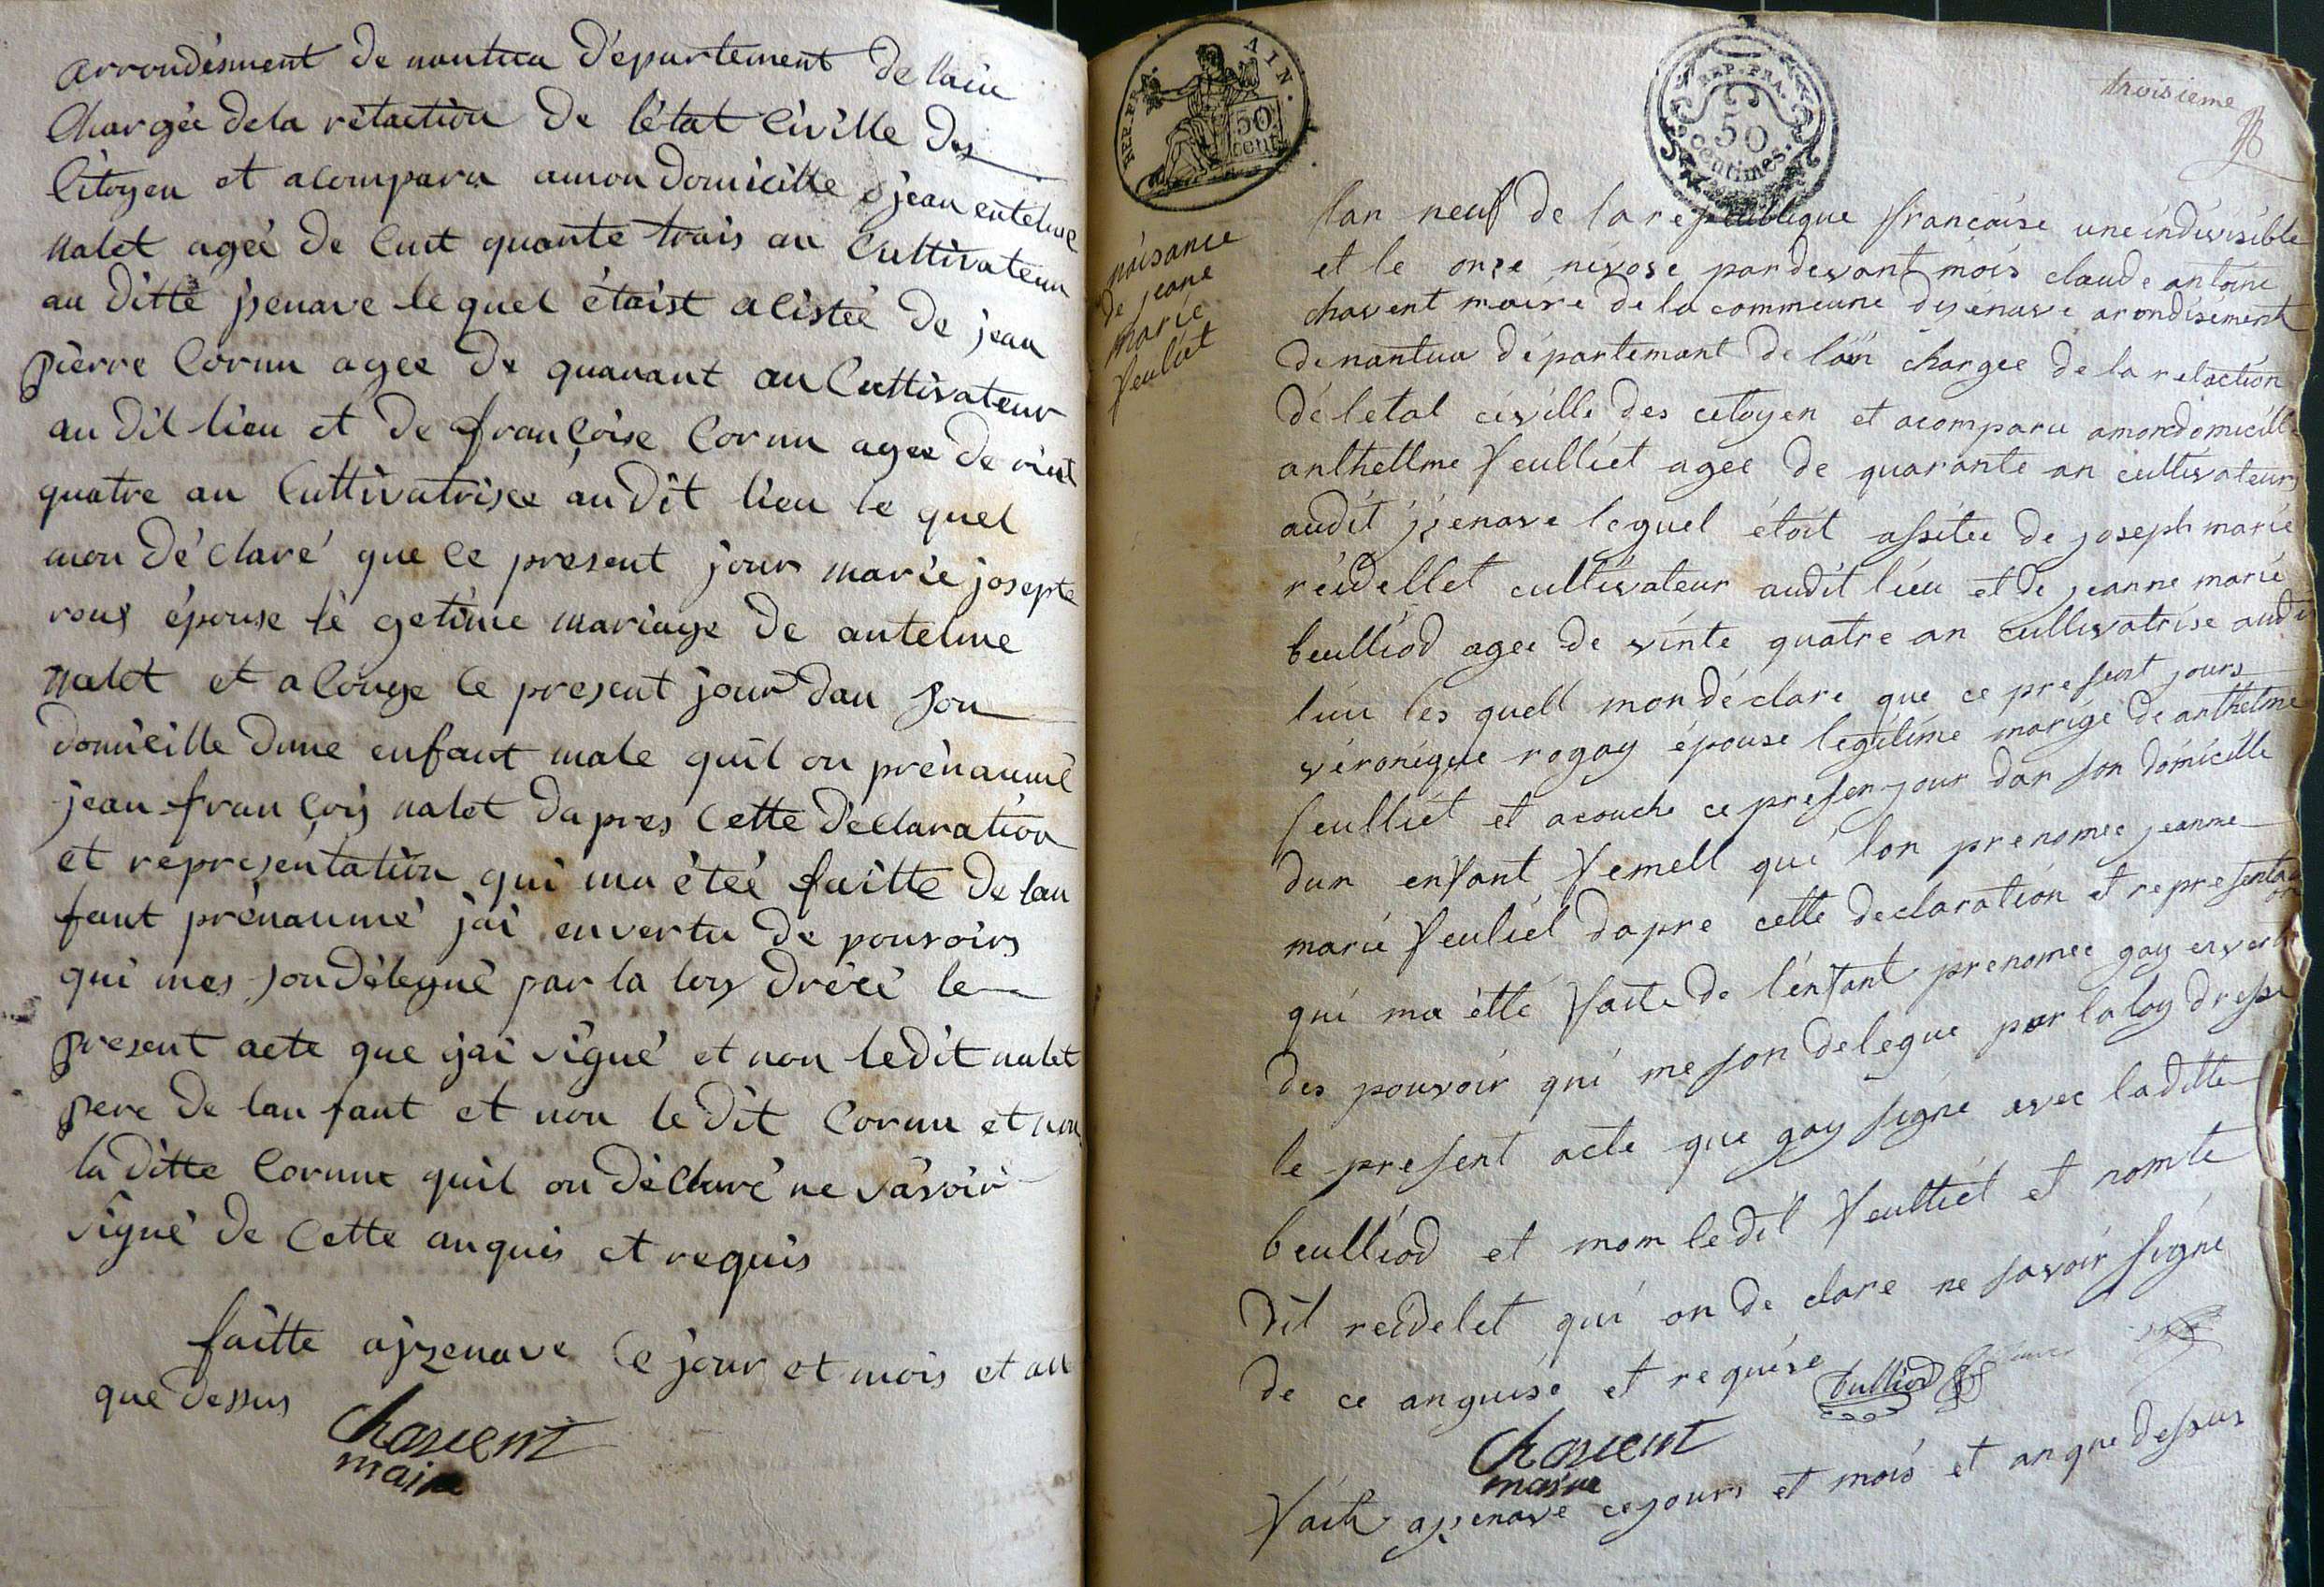 arrondésment de nantua département de lain
Chargée dela rétaction de létat Civille des
Citoyen et a comparu amon domicille jean entelme
nalet ageé de cint quante trais an Cultivateur
au ditte jzenave le quel étaist a cistéé de jean
pierre Cornu agee de quarant an Cultivateur
au dit lieu et de françoise Cornu agee de vint
quatre an Cultivatrisce au dit lieu le quel
mon dé claré que ce present jour marie josepte
rous épouse lé getime mariage de antelme
nalet et a couge ce present jour dan son
domicille dune enfant male quil on prénaumé
jean françois nalet dapres Cette déclaration
et représentation qui ma étéé faitte de lan
fant prénaumé jai en vertu de pouvoirs
qui mes son délegué par la loy drécé le
présent acte que jai signé et non le dit nalet
pere de lan fant et non le dit Cornu et non
la ditte Cornue quil on déclaré ne savoir
signé de Cette anquis et requis
faitte ajzenave le jour et mois et an
que dessus
Chavent
maire
REP. FRA. AIN.
50 cent.
REP. FRA.
50
centimes.
troisieme
naisance
de jeane
marie
feuliet
lan neuf de la republique francaise une indivisible
et le onze nivose pardevant mois claude antoine
chavent maire de la commeune dyzenave arondisément
de nantua département de lain chargee de la relaction
dé letat civille des citoyen et acomparu amondomicille
anthellme feulliet agee de quarante an cultivateurs
audit jzenave lequel étoit assitee de joseph marie
reidellet cultivateur audit lieu et de jeanne marie
beulliod agee de vinte quatre an cultivatrise audit
lieu les quell mon déclare que ce present jours
véronique rogay épouse legitime marige de anthelme
feulliet et acouche ce presen jour dan son domicille
dun enfant femell qui lon prenomee jeanne
marie feuliet dapre cette declaration et representation
qui ma étté faite de lenfant prenomee gay en vertu
des pouvoir qui me son delegue par la loy dresse
le present acte que gay signe avec laditte
beulliod et mom ledit feulliet et nom le
dit reidelet qui on de clare ne savoir signé
de ce anquise et requise
bulliod
Chavent
maire
fait ajzenave ce jours et mois et an que dessus